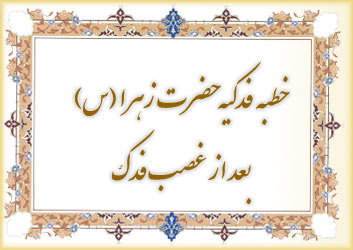 خطبه فدکیه حضرت زهرا (س)
بعد از غصب فدک